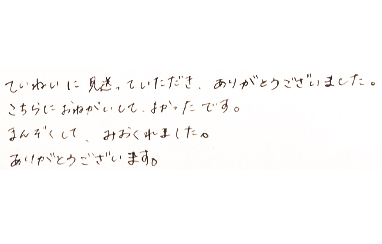 ていねいに見送っていただき、ありがとうございました。
こちらにおねがいして、よかったです。
まんぞくして、みおくれました。
ありがとうございます。